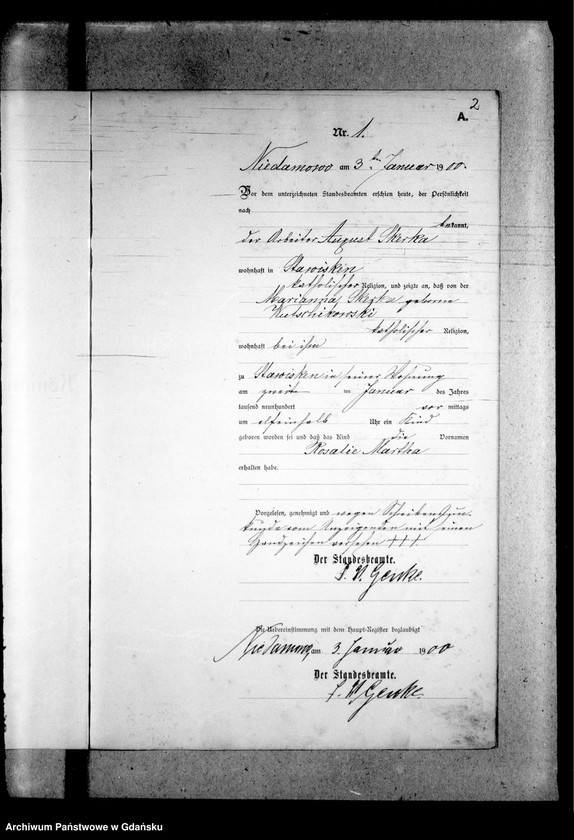 2
A.
Nr. 1.
Niedamowo am 3ten Januar 1900.
Vor dem unterzeichneten Standesbeamten erschien heute, der Persönlichkeit
nach
bekannt,
der Arbeiter August Skerka
wohnhaft in Stawisken
katholischer Religion, und zeigte an, daß von der
Marianna Skerka geborene
Kutschikowski
katholischer Religion,
wohnhaft bei ihm
zu Stawisken in seiner Wohnung
am zweiten Januar des Jahres
tausend neunhundert vor mittags
um elfeinhalb Uhr ein Kind
geboren worden sei und daß das Kind die Vornamen
Rosalie Martha
erhalten habe.
Vorgelesen, genehmigt und wegen Schreibensun-
kunde vom Anzeigenden mit seinem
Handzeichen versehen +++.
Der Standesbeamte.
Genke.
Die Uebereinstimmung mit dem Haupt-Register beglaubigt
Niedamowo am 3. Januar 1900
Der Standesbeamte.
Genke.
Archiwum Państwowe w Gdańsku